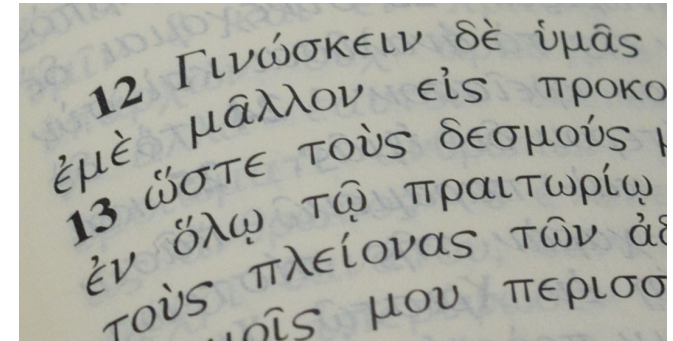 12 Γινώσκειν δὲ ὑμᾶς
ἐμὲ μᾶλλον εἰς προκο
13 ὥστε τοὺς δεσμούς
ἐν ὅλῳ τῷ πραιτωρίῳ
τοὺς πλείονας τῶν ἀδ
μου περισσ